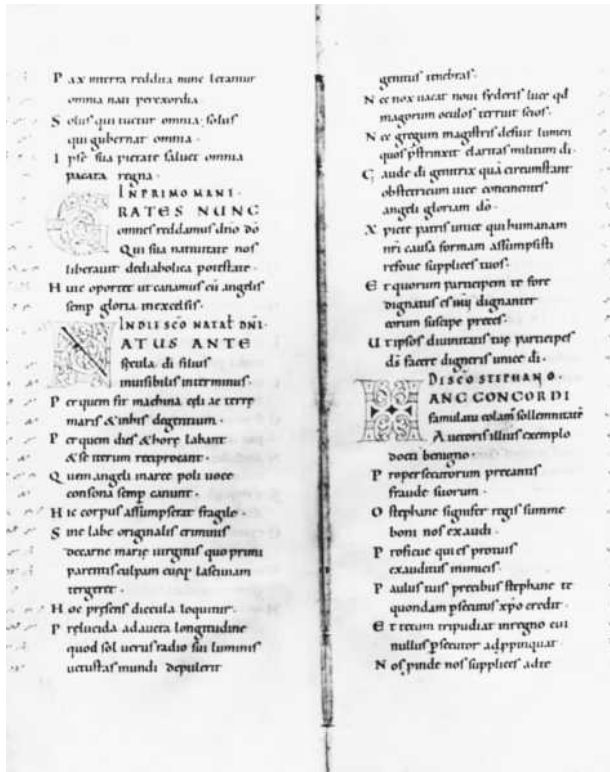 P ax interra reddita nunc letantur
omnia nati perexordia.
S olus qui tuetur omnia. solus
qui gubernat omnia.
I pse sua pietate saluet omnia
pacata regna.
IN PRIMO MANE.
GRATES NUNC
omnes reddamus dno dō
Qui sua natiuitate nos
liberauit dediabolica potestate.
H uic oportet ut canamus cū angelis
semp gloria inexcelsis.
IN DIE SCO NATAL DNI.
NATUS ANTE
secula di filius
inuisibilis interminus.
P er quem fit machina cęli ac terrę
maris & inhis degentium.
P er quem dies & horę labant
& se iterum reciprocant.
Q uem angeli inarce poli uoce
consona semp canunt.
H ic corpus assumpserat fragile.
S ine labe originalis criminis
decarne marię uirginis quo primi
parentis culpam euęq; lasciuiam
tergeret.
H oc pręsens diecula loquitur.
P relucida adaucta longitudine
quod sol uerus radio sui luminis
uetustas mundi depulerit
genitus tenebras.
N ec nox uacat noui syderis luce qd
magorum oculos terruit scios.
N ec gregum magistris defuit lumen
quos pstrinxit claritas militum di.
G aude di genitrix quā circumstant
obstetricum uice concinentes
angeli gloriam dō.
X piste patris unice qui humanam
nri causa formam assumpsisti
refoue supplices tuos.
E t quorum participem te fore
dignatus es
dignanter
eorum suscipe preces.
U t ipsos diuinitatis tuę participes
dš facere digneris unice di.
DE SCO STEPHANO.
HANC CONCORDI
famulatu colam sollemnitatē
A uctoris illius exemplo
docti benigno.
P ro persecutorum precantis
fraude suorum.
O stephane signifer regis summe
boni nos exaudi.
P roficue qui es protuis
exauditus inimicis.
P aulus tuis precibus stephane te
quondam psecutus xpo credit.
E t tecum tripudiat inregno cui
nullus psecutor adppinquat.
N os pinde nos supplices adte